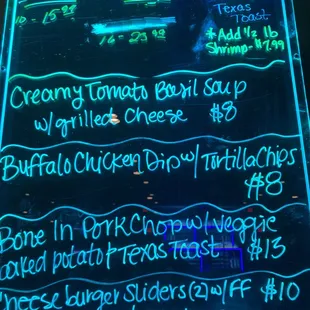 Texas
Toast
10 - 15.99
* Add 1/2 lb
16 - 23.99
Shrimp - $7.99
Creamy Tomato Basil Soup
w/ grilled Cheese $8
Buffalo Chicken Dip w/ Tortilla Chips
$8
Bone In Pork Chop w/ veggie
baked potato + Texas Toast $13
Cheeseburger Sliders (2) w/ FF $10